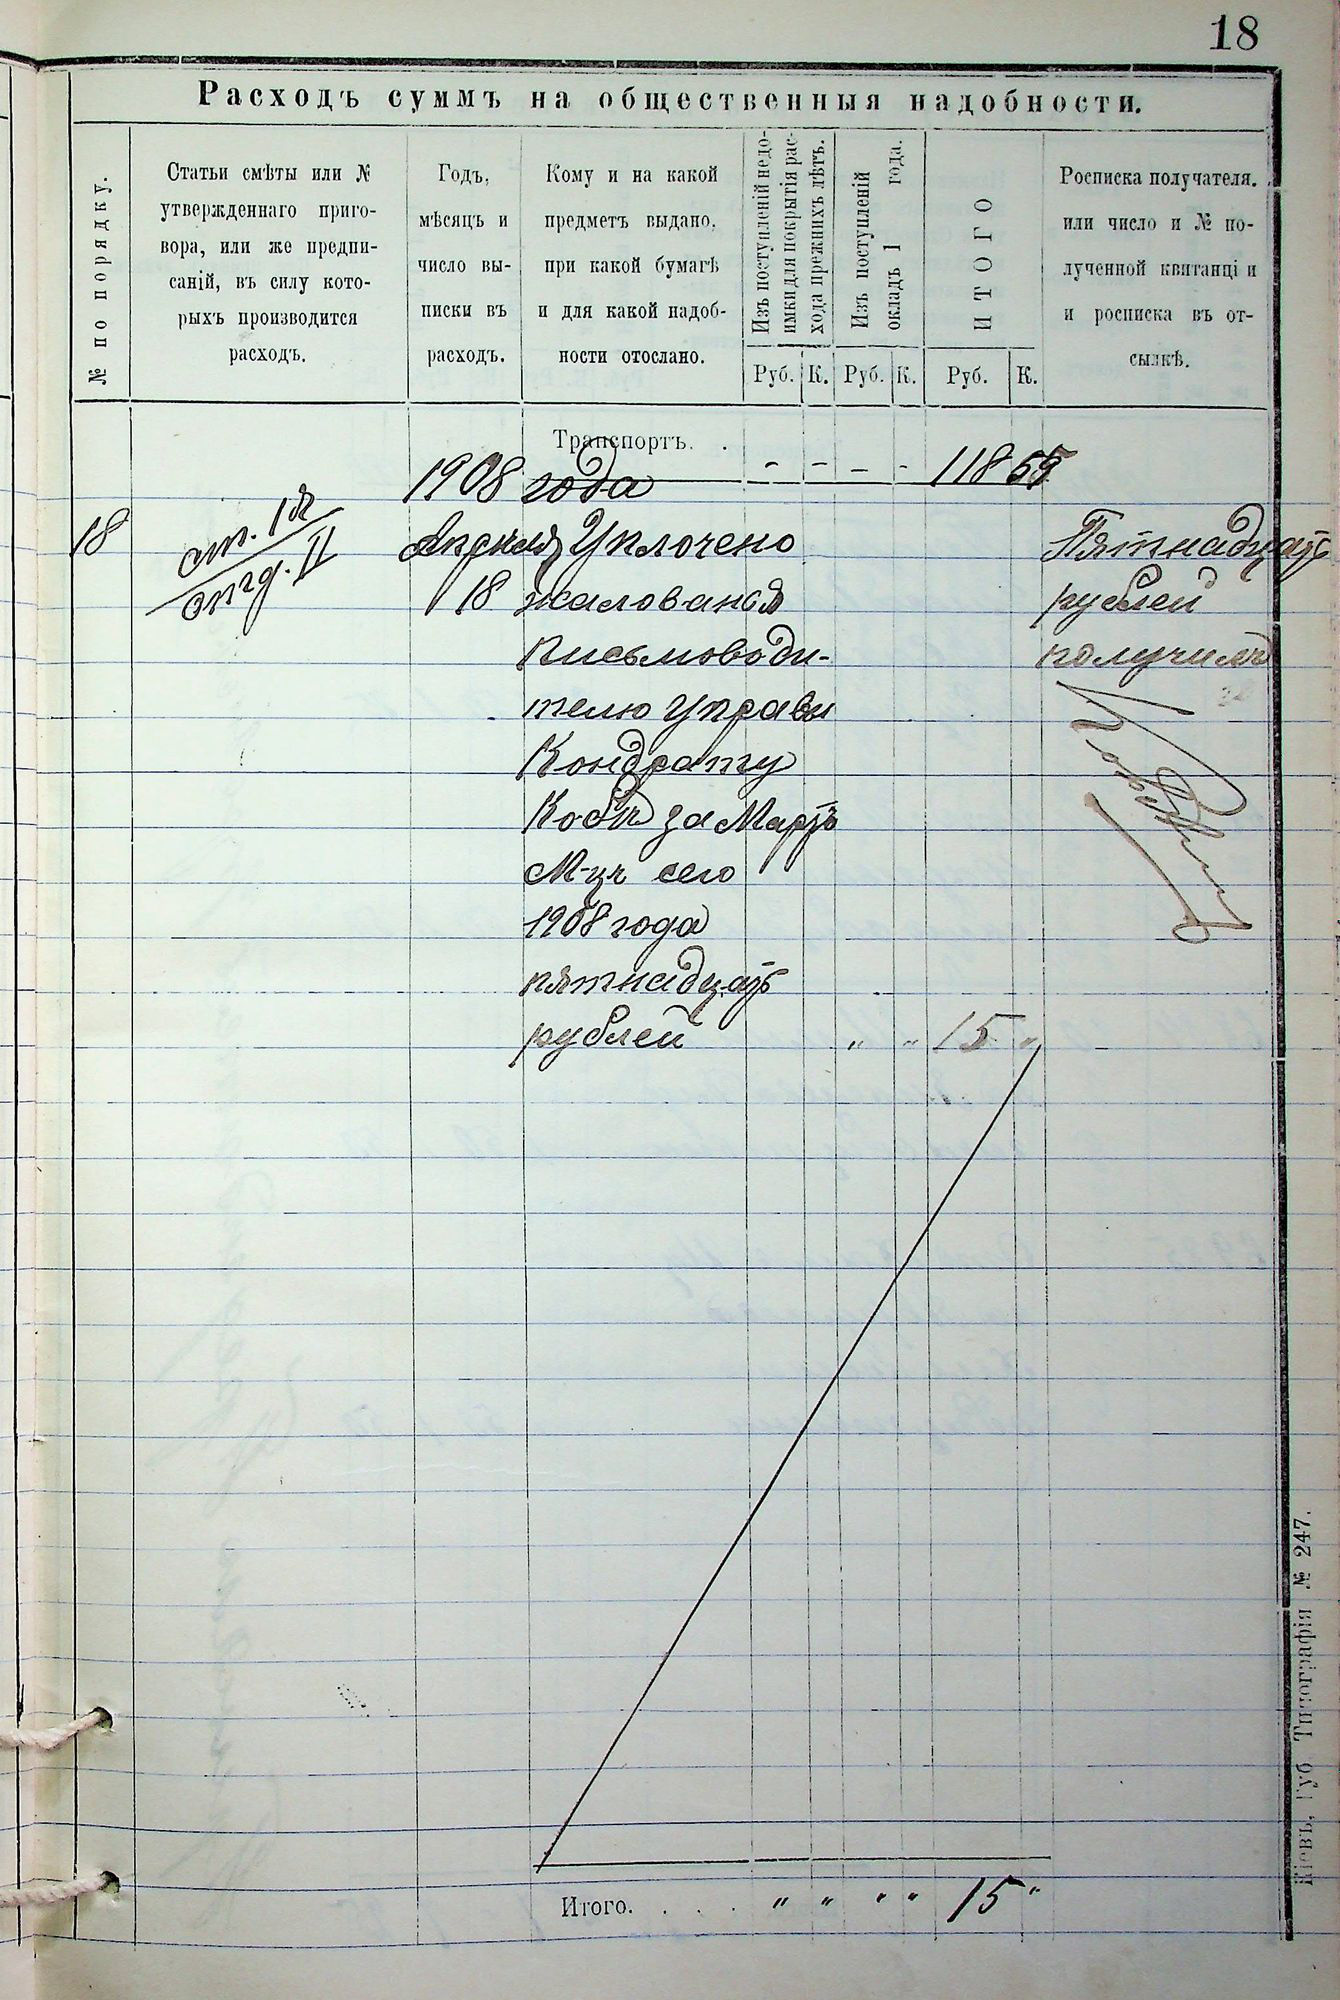 18
Расходъ суммъ на общественныя надобности.
№ по порядку.
Статьи смѣты или №
утвержденнаго приго-
вора, или же предпи-
саній, въ силу кото-
рыхъ производится
расходъ.
Годъ,
мѣсяцъ и
число вы-
писки въ
расходъ.
Кому и на какой
предметъ выдано,
при какой бумагѣ
и для какой надоб-
ности отослано.
Изъ поступленій недо-
имки для покрытія рас-
хода прежнихъ лѣтъ.
Изъ поступленій
окладъ 1 года.
ИТОГО
Росписка получателя.
или число и № по-
лученной квитанціи
и росписка въ от-
сылкѣ.
Руб. К. Руб. К. Руб. К.
Транспортъ. .
1908 года - - - - 118 55
18 ст. 1я Апрѣля Уплочено Пятнадцать
отд. II 18 жалованья рублей
Письмоводи- получилъ
телю Управы
Кондрату
Кобы за Мартъ
М-цъ сего
1908 года
пятнадцать
рублей " " 15 "
Итого. . . . " " " " 15 "
Кіевъ, Губ Типографія № 247.